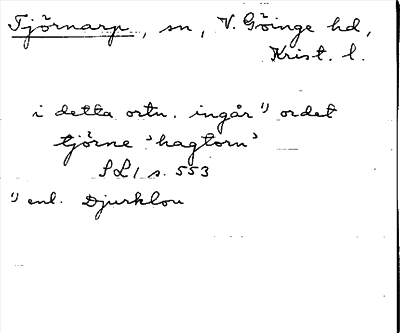 Tjörnarp, sn, V. Göinge hd,
Krist. l.
i detta ortn. ingår ¹) ordet
tjörne 'hagtorn'
SL1 s. 553
¹) enl. Djurklou